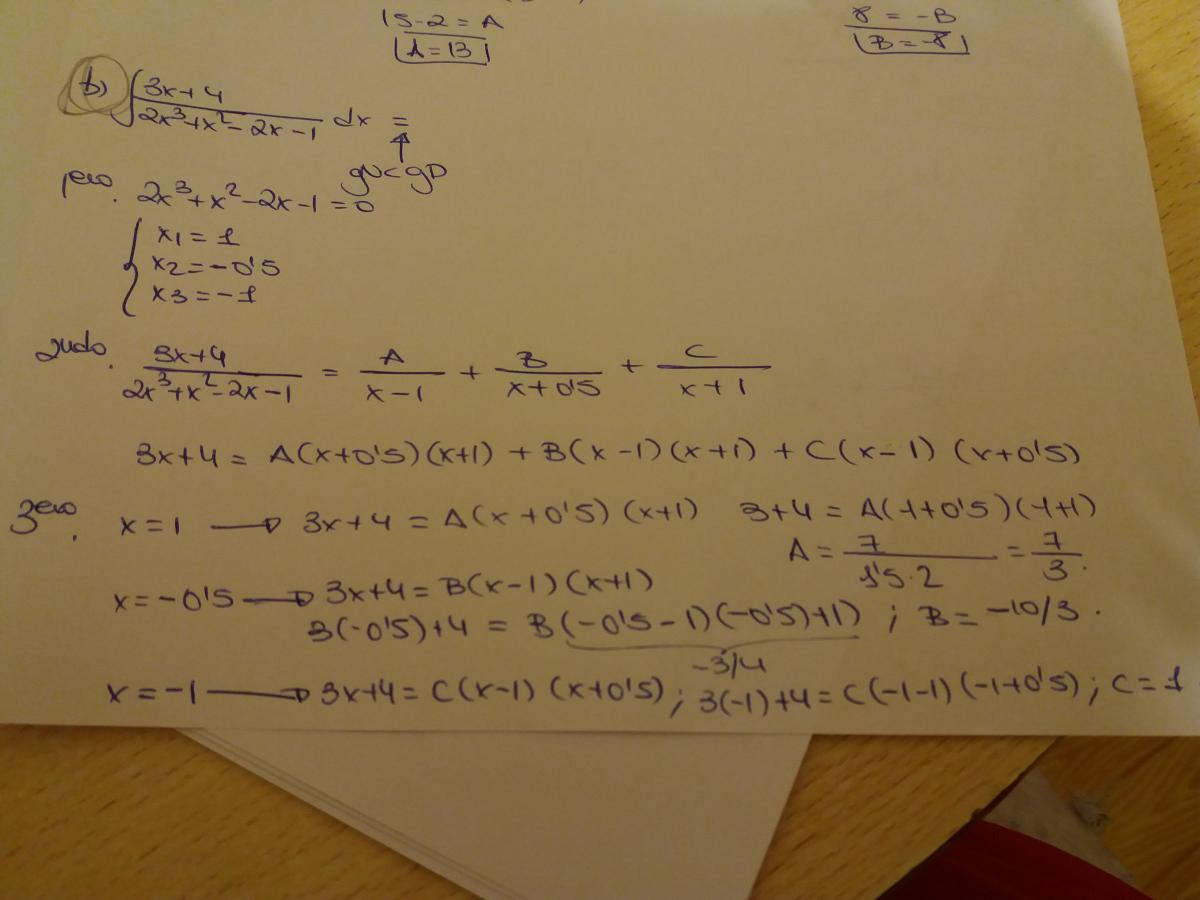 15-2 = A
A = 13
8 = -B
B = -8
b) ∫ 3x+4 / 2x³+x²-2x-1 dx =
gN<gD
1ero. 2x³+x²-2x-1 = 0
x1 = 1
x2 = -0'5
x3 = -1
2ndo. 3x+4 / 2x³+x²-2x-1 = A / x-1 + B / x+0'5 + C / x+1
3x+4 = A(x+0'5)(x+1) + B(x-1)(x+1) + C(x-1)(x+0'5)
3ero. x=1 → 3x+4 = A(x+0'5)(x+1) 3+4 = A(1+0'5)(1+1)
A = 7 / 1'5·2 = 7 / 3.
x=-0'5 → 3x+4 = B(x-1)(x+1)
3(-0'5)+4 = B(-0'5-1)(-0'5)+1) ; B = -10/3.
-3/4
x=-1 → 3x+4 = C(x-1)(x+0'5); 3(-1)+4 = C(-1-1)(-1+0'5); C=1